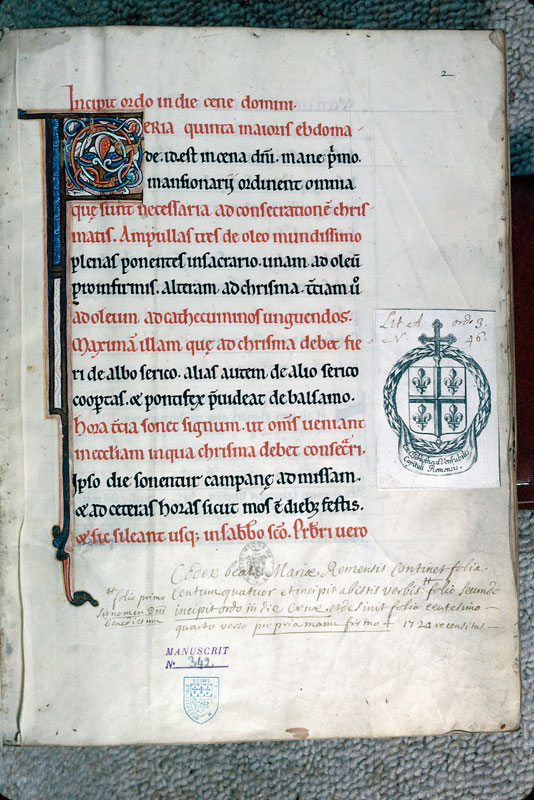 2
Incipit ordo in die cene domini.
FERIA quinta maioris ebdoma-
de. id est in cena dn̄i. mane p̄mo.
mansionarij ordinent omnia
quę sunt necessaria ad consecrationē chris-
matis. Ampullas tres de oleo mundissimo
plenas ponentes in sacrario. unam ad oleū
pro infirmis. alteram ad chrisma. t̄ciam ū
ad oleum ad cathecuminos unguendos.
Maximā illam quę ad chrisma debet fie-
ri de albo serico. alias autem de alio serico
coop̄tas. & pontifex p̄uideat de balsamo.
Hora t̄cia sonet signum. ut om̄s veniant
in eccl̄iam in qua chrisma debet consec̄ri.
Ipso die sonentur campanę ad missam.
& ad ceteras horas sicut mos ē dieb; festis.
& sic sileant usq; in sabb̄o sc̄o. Prb̄ri vero
Lit ed ordo 3.
N. 46.
Ex Bibliotheca Venerabilis
Capituli Remensis.
Codex beatæ Mariæ Remensis continet folia
Centum quatuor et incipit abistis verbis # folio secundo
# folio primo
sit nomen Dni
benedictum
incipit ordo in die Cœnæ, et desinit folio centesimo
quarto verso propria manu firmo + 1724 recensitus
MANUSCRIT
N° 342
REIMS